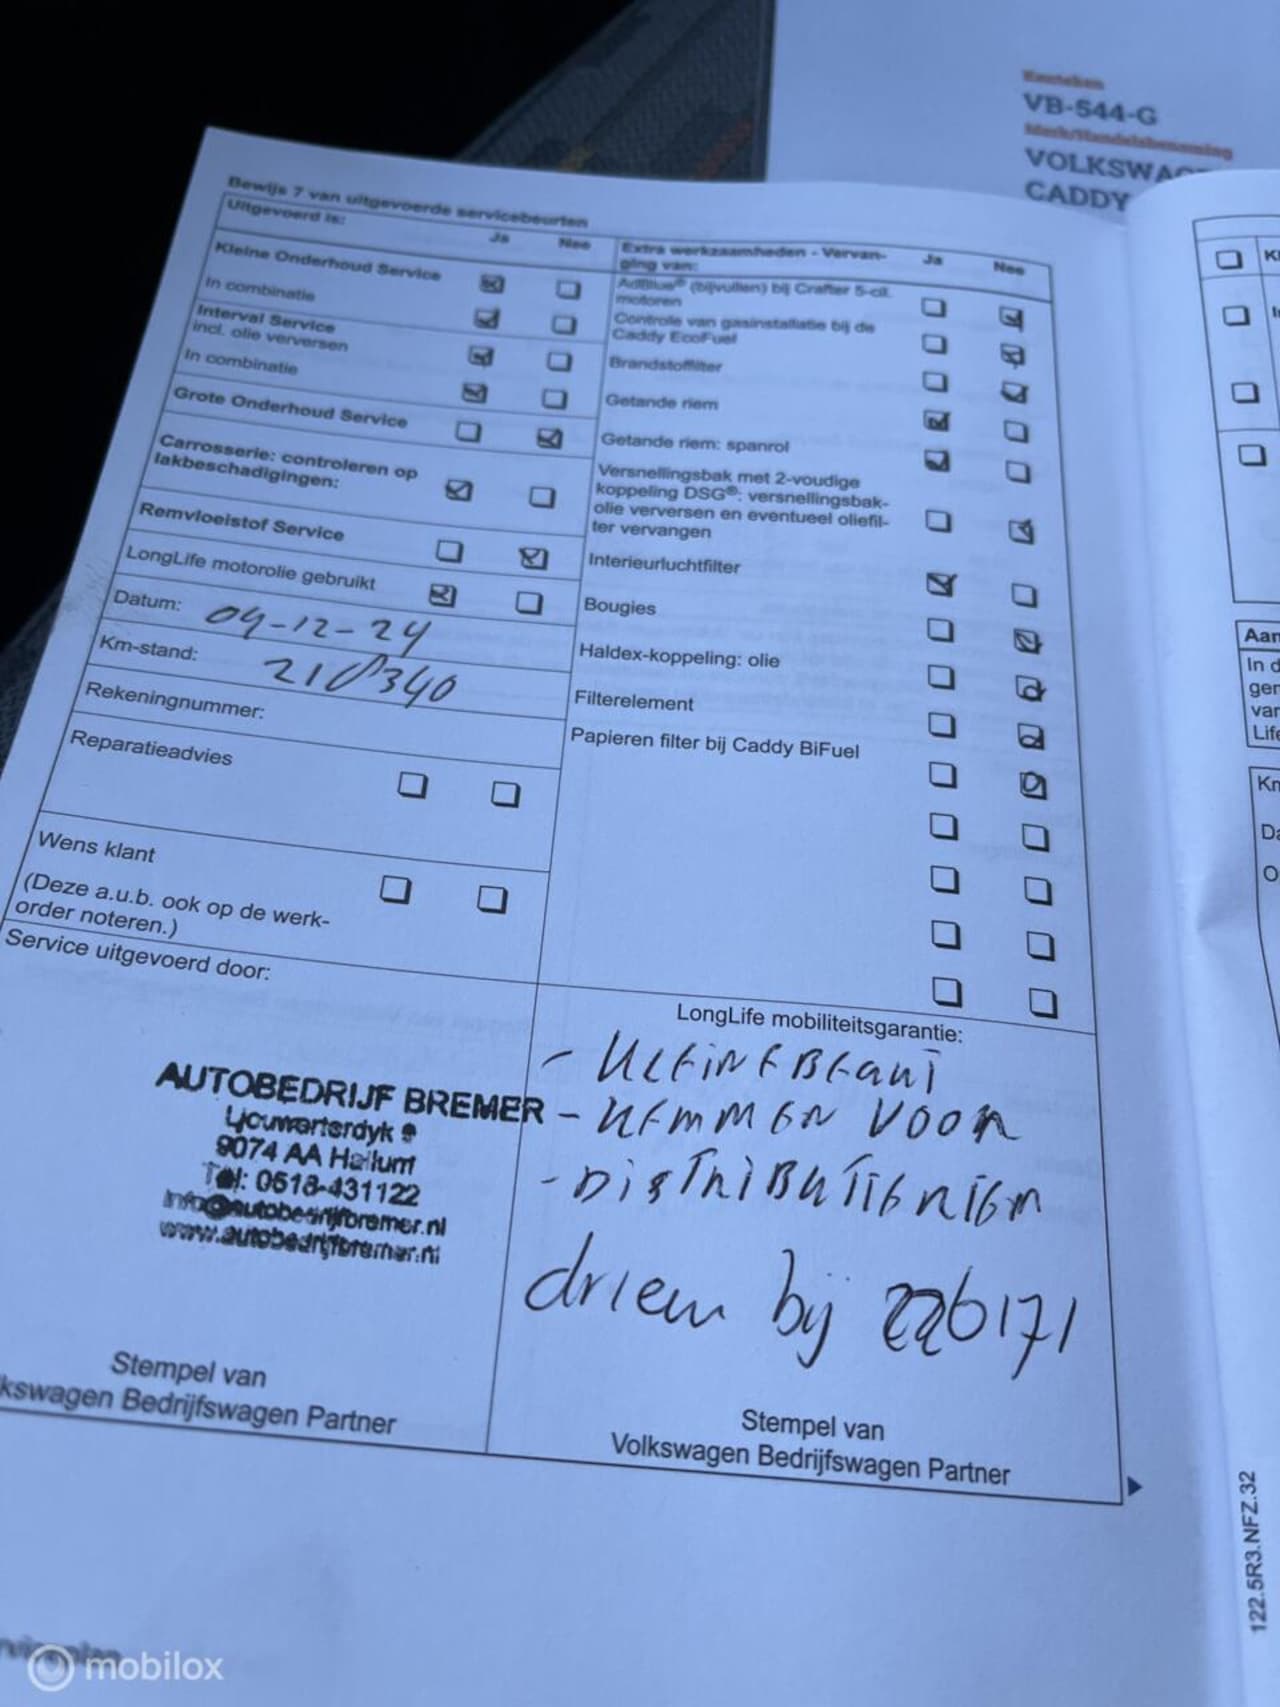 Kenteken
VB-544-G
Merk/Handelsbenaming
VOLKSWAG
CADDY
Bewijs 7 van uitgevoerde servicebeurten
Uitgevoerd is:
Ja
Nee
Kleine Onderhoud Service
In combinatie
Interval Service
incl. olie verversen
In combinatie
Grote Onderhoud Service
Carrosserie: controleren op
lakbeschadigingen:
Remvloeistof Service
LongLife motorolie gebruikt
Datum: 04-12-24
Km-stand: 210340
Rekeningnummer:
Reparatieadvies
Wens klant
(Deze a.u.b. ook op de werk-
order noteren.)
Service uitgevoerd door:
AUTOBEDRIJF BREMER
Ljouwerterdyk
9074 AA Hallum
Tel: 0518-431122
info@autobedrijfbremer.nl
www.autobedrijfbremer.nl
Stempel van
kswagen Bedrijfswagen Partner
Extra werkzaamheden - Vervan-
ging van:
Ja
Nee
AdBlue® (bijvullen) bij Crafter 5-cil.
motoren
Controle van gasinstallatie bij de
Caddy EcoFuel
Brandstoffilter
Getande riem
Getande riem: spanrol
Versnellingsbak met 2-voudige
koppeling DSG®: versnellingsbak-
olie verversen en eventueel oliefil-
ter vervangen
Interieurluchtfilter
Bougies
Haldex-koppeling: olie
Filterelement
Papieren filter bij Caddy BiFuel
LongLife mobiliteitsgarantie:
- KLEINE BEURT
- REMMEN VOOR
- DISTRIBUTIERIEM
driem bij 226171
Stempel van
Volkswagen Bedrijfswagen Partner
Aan
In d
ger
var
Life
Km
Da
O
122.5R3.NFZ.32
mobilox